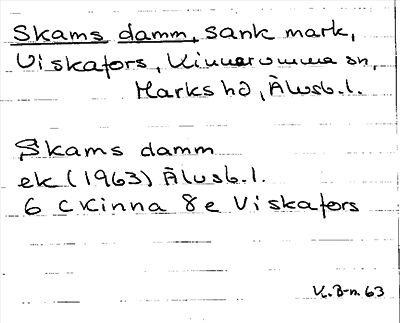 Skams damm, sank mark,
Viskafors, Kinnarumma sn,
Marks hd, Älvsb.l.
Skams damm
ek (1963) Älvsb.l.
6 c Kinna 8 e Viskafors
K.B-n. 63